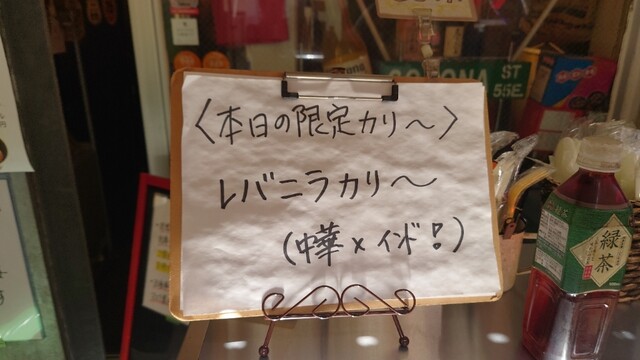 〈本日の限定カリ～〉
レバニラカリ～
(中華×インド！)
ST
55E
緑茶